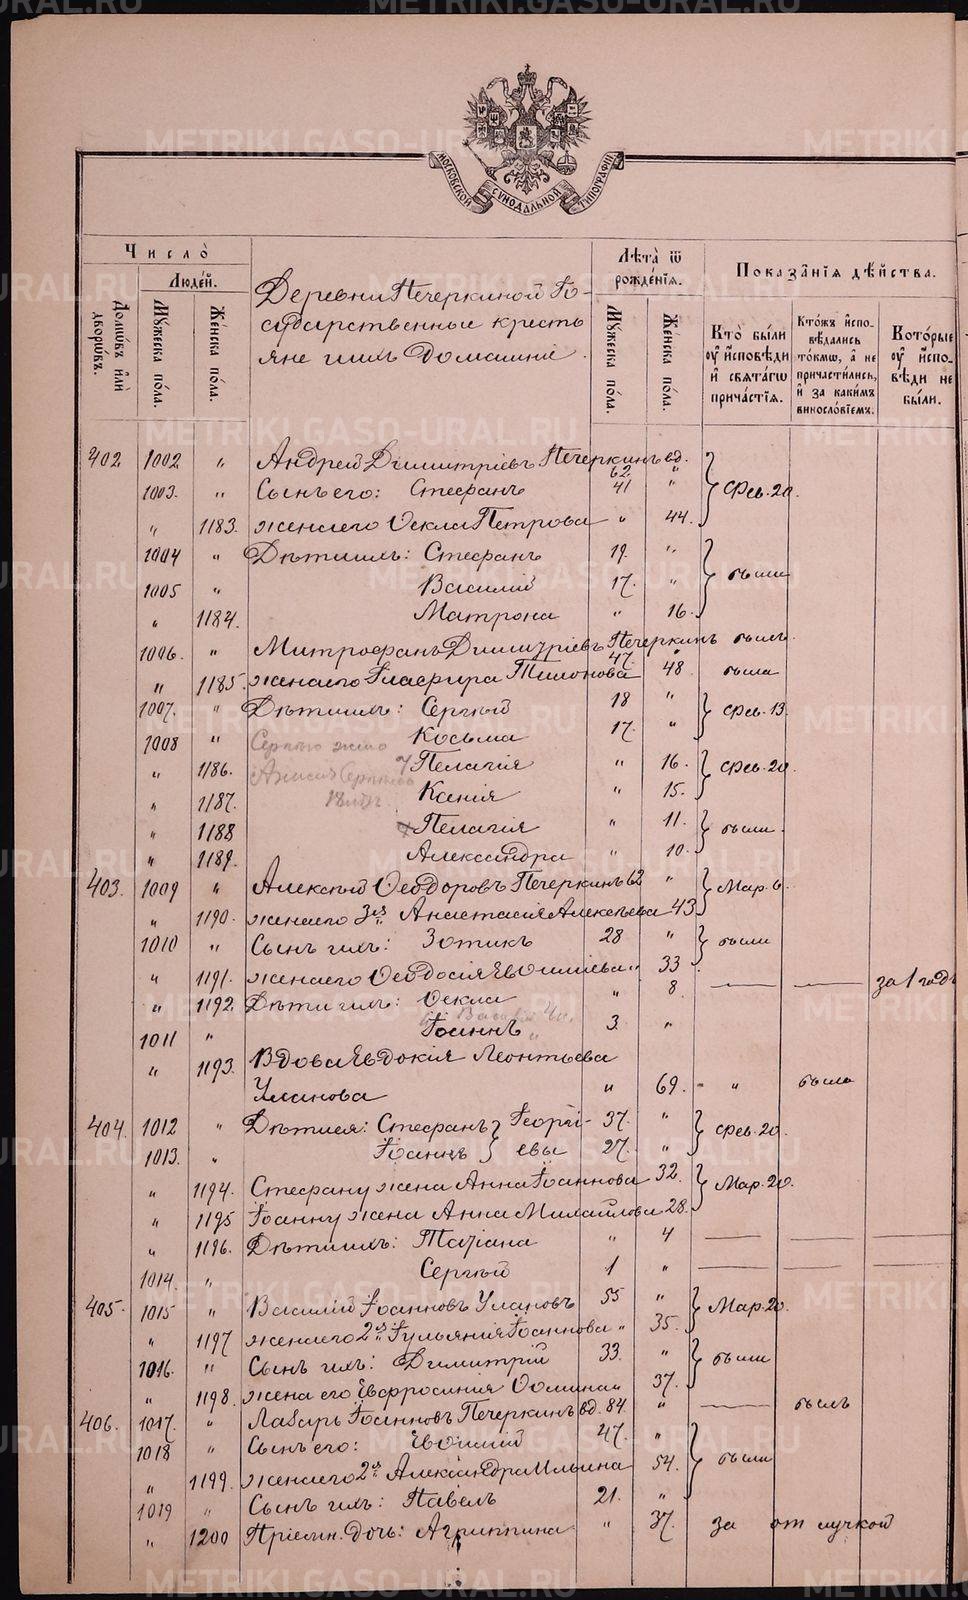 МОСКОВСКОЙ СѴНОДАЛЬНОЙ ТИПОГРАФІИ
Число̀
Людéй.
Домѡвъ и҆лѝ дворѡвъ.
Мꙋ́жеска по́ла.
Же́нска по́ла.
Деревни Печеркиной Го-
сударственные кресть
яне и ихъ домашніе.
Лѣ́та ѿ рожде́нїѧ.
Мꙋ́жеска по́ла.
Же́нска по́ла.
Показа́нїѧ дѣ́йства.
Кто̀ бы́ли ᲂу҆ и҆спо́вѣди и҆ свѧта́гѡ прича́стїѧ.
Кто́жъ и҆спо-вѣ́дались то́кмѡ, а҆ не причасти́лись, и҆ за каки́мъ виносло́вїемъ.
Кото́рые ᲂу҆ и҆спо-вѣди не бы́ли.
402 1002 " Андрей Димитріевъ Печеркинъ вд. 62 "
1003. " Сынъ его: Стефанъ 41 " Фев. 20.
" 1183. жена его Ѳекла Петрова " 44.
1004 " Дѣти ихъ: Стефанъ 19. "
1005 " Василій 17. " были
" 1184. Матрона " 16.
1006. " Митрофанъ Димитріевъ Печеркинъ 47. " былъ
" 1185. жена его Гласфира Тимонова 48 была
1007. " Дѣти ихъ: Сергѣй 18 " Фев. 13.
1008 " Косьма 17. "
Сергѣю жена
" 1186. Пелагія " 16. Фев. 20.
Анисія Сергѣева
" 1187. Ксенія " 15.
18
" 1188 Пелагія " 11. были
" 1189. Александра " 10.
403. 1009 " Алексѣй Ѳеодоровъ Печеркинъ 62 " Мар. 6.
" 1190. жена его 3я Анастасія Алексѣева 43
1010 " Сынъ ихъ: Зотикъ 28 " были
" 1191. жена его Ѳеодосія Евѳиміева " 33
" 1192. Дѣти ихъ: Ѳекла " 8. за 1 годъ
1011 " Іоаннъ 3. "
" 1193. Вдова Евдокія Леонтьева
Уланова " 69. - " была
404. 1012 " Дѣти ея: Стефанъ } Георгі- 37. " Фев. 20.
1013. " Іоаннъ } евы 27. "
" 1194. Стефану жена Анна Іоаннова 32. Мар. 20.
" 1195 Іоанну жена Анна Михайлова 28.
" 1196. Дѣти ихъ: Татіана " 4
1014. " Сергѣй 1 "
405. 1015 " Василій Іоанновъ Улановъ 55 " Мар. 20.
" 1197 жена его 2я Іульянія Іоаннова " 35.
1016. " Сынъ ихъ: Димитрій 33. " были
" 1198. жена его Евфросинія Ѳомина " 37.
406. 1017. " Лазарь Іоанновъ Печеркинъ вд. 84. " былъ
1018 " Сынъ его: Евѳимій 47. "
" 1199. жена его 2я Александра Ильина 54. были
1019 " Сынъ ихъ: Павелъ 21. "
" 1200 Пріемн. дочь: Агриппина " 37. за отлучкой
METRIKI.GASO-URAL.RU